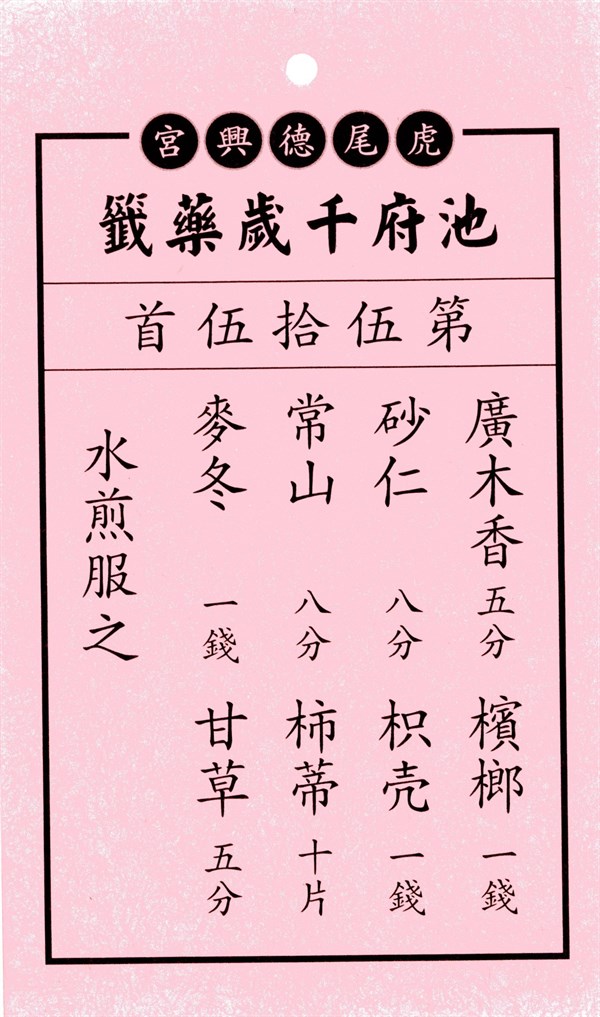 虎尾德興宮
池府千歲藥籤
第伍拾伍首
廣木香五分 檳榔一錢
砂仁 八分 枳壳一錢
常山 八分 柿蒂十片
麥冬 一錢 甘草五分
水煎服之